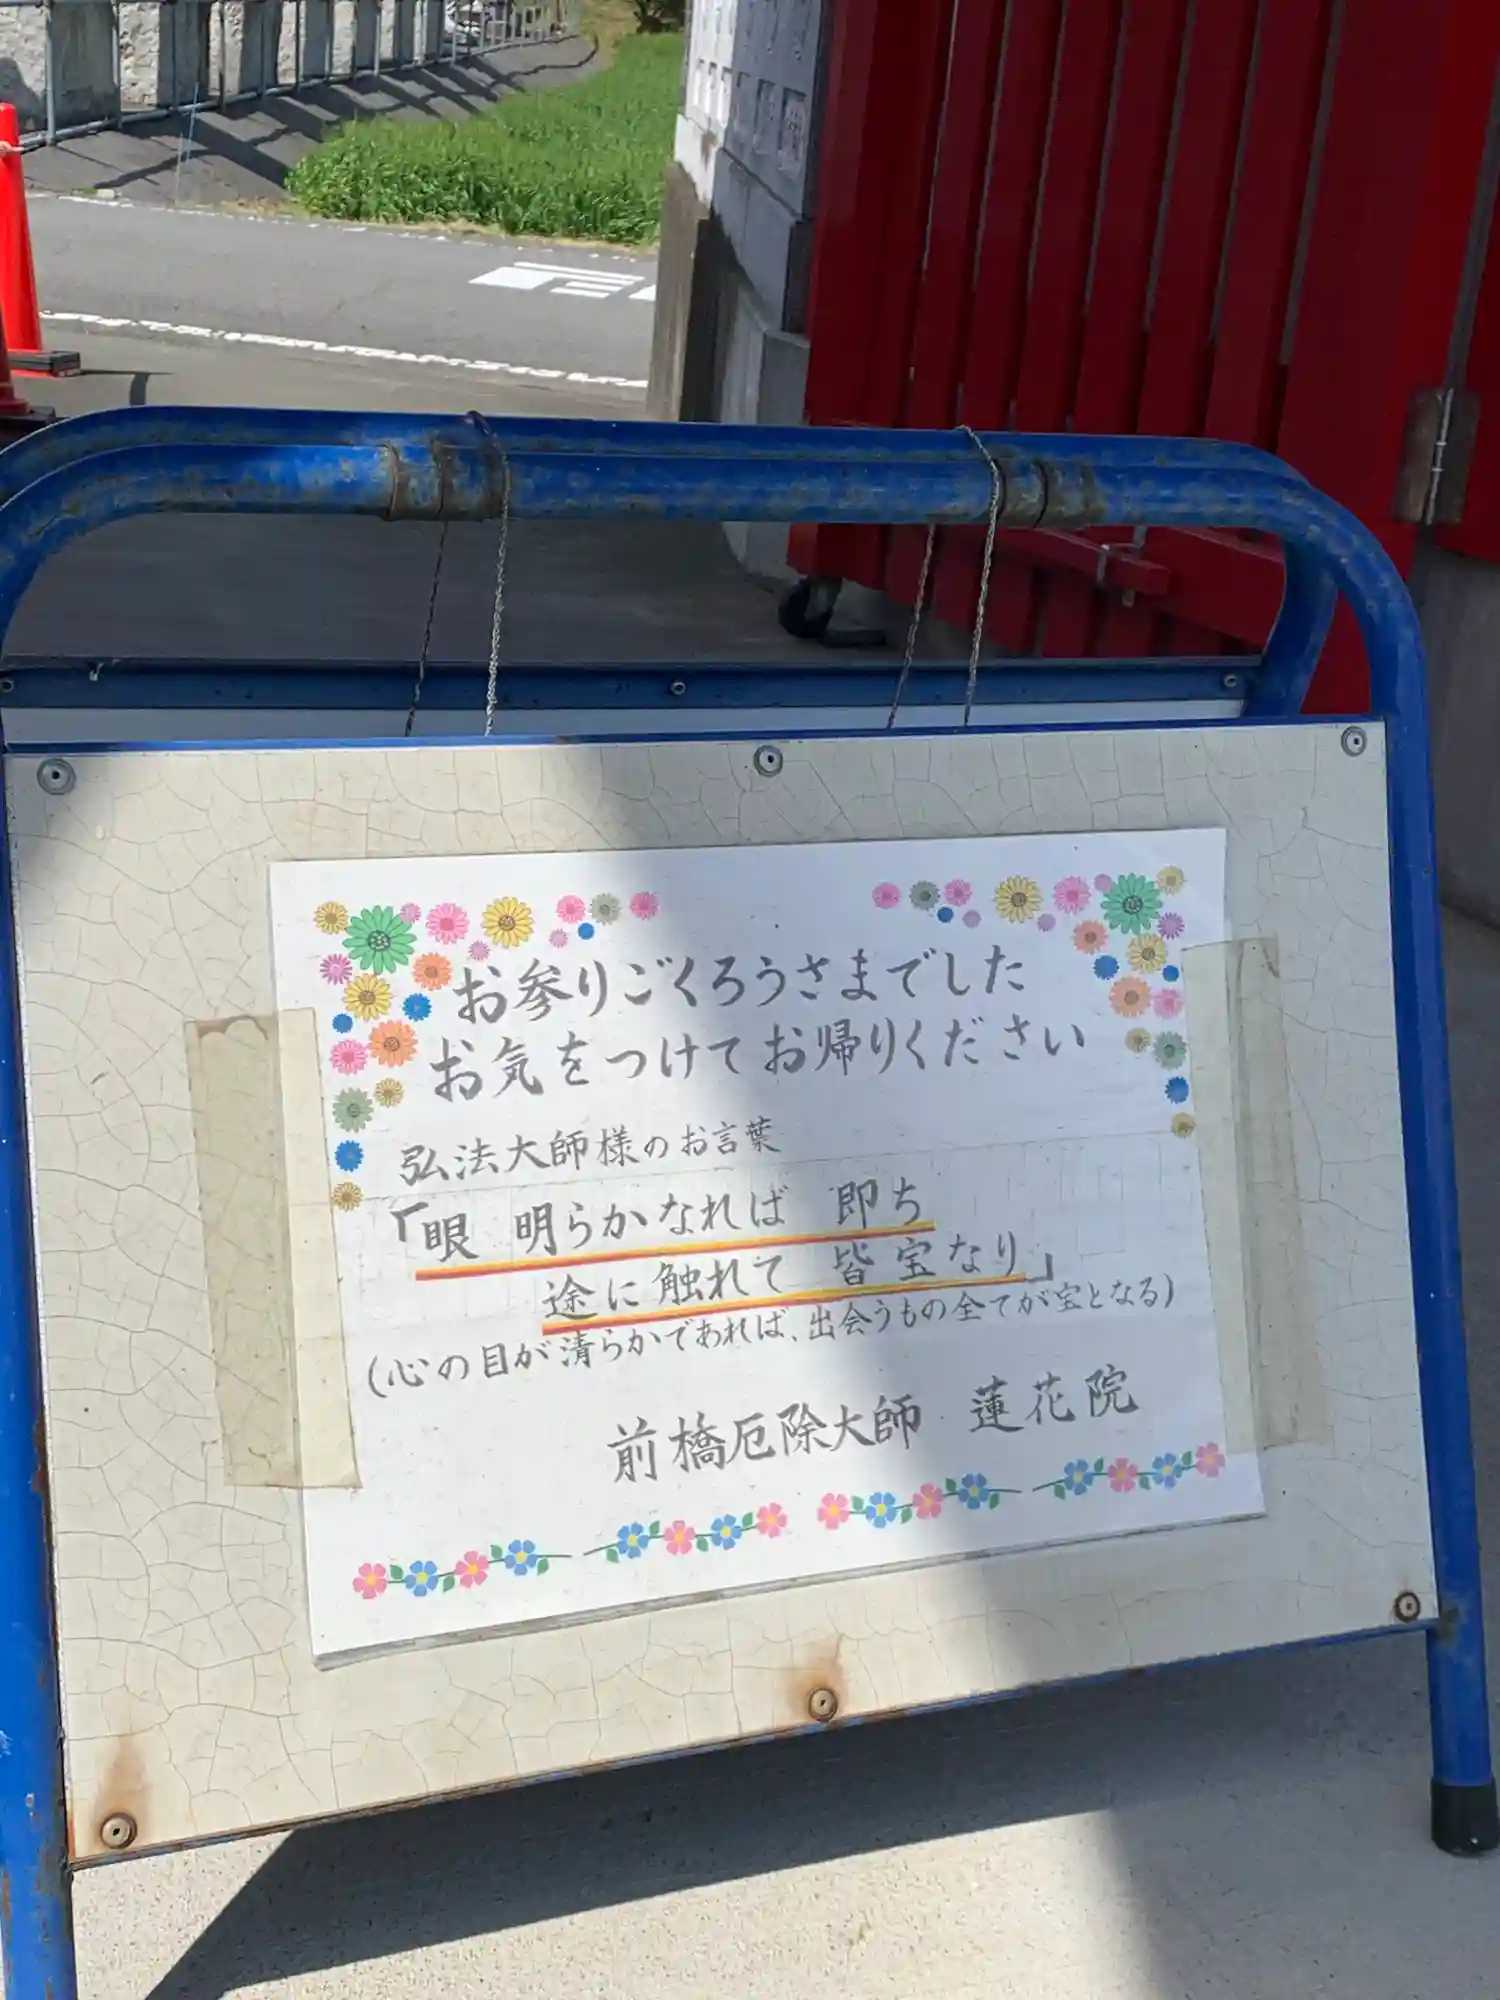 お参りごくろうさまでした
お気をつけてお帰りください
弘法大師様のお言葉
「眼 明らかなれば 即ち
途に触れて 皆宝なり」
(心の目が清らかであれば、出会うもの全てが宝となる)
前橋厄除大師 蓮花院